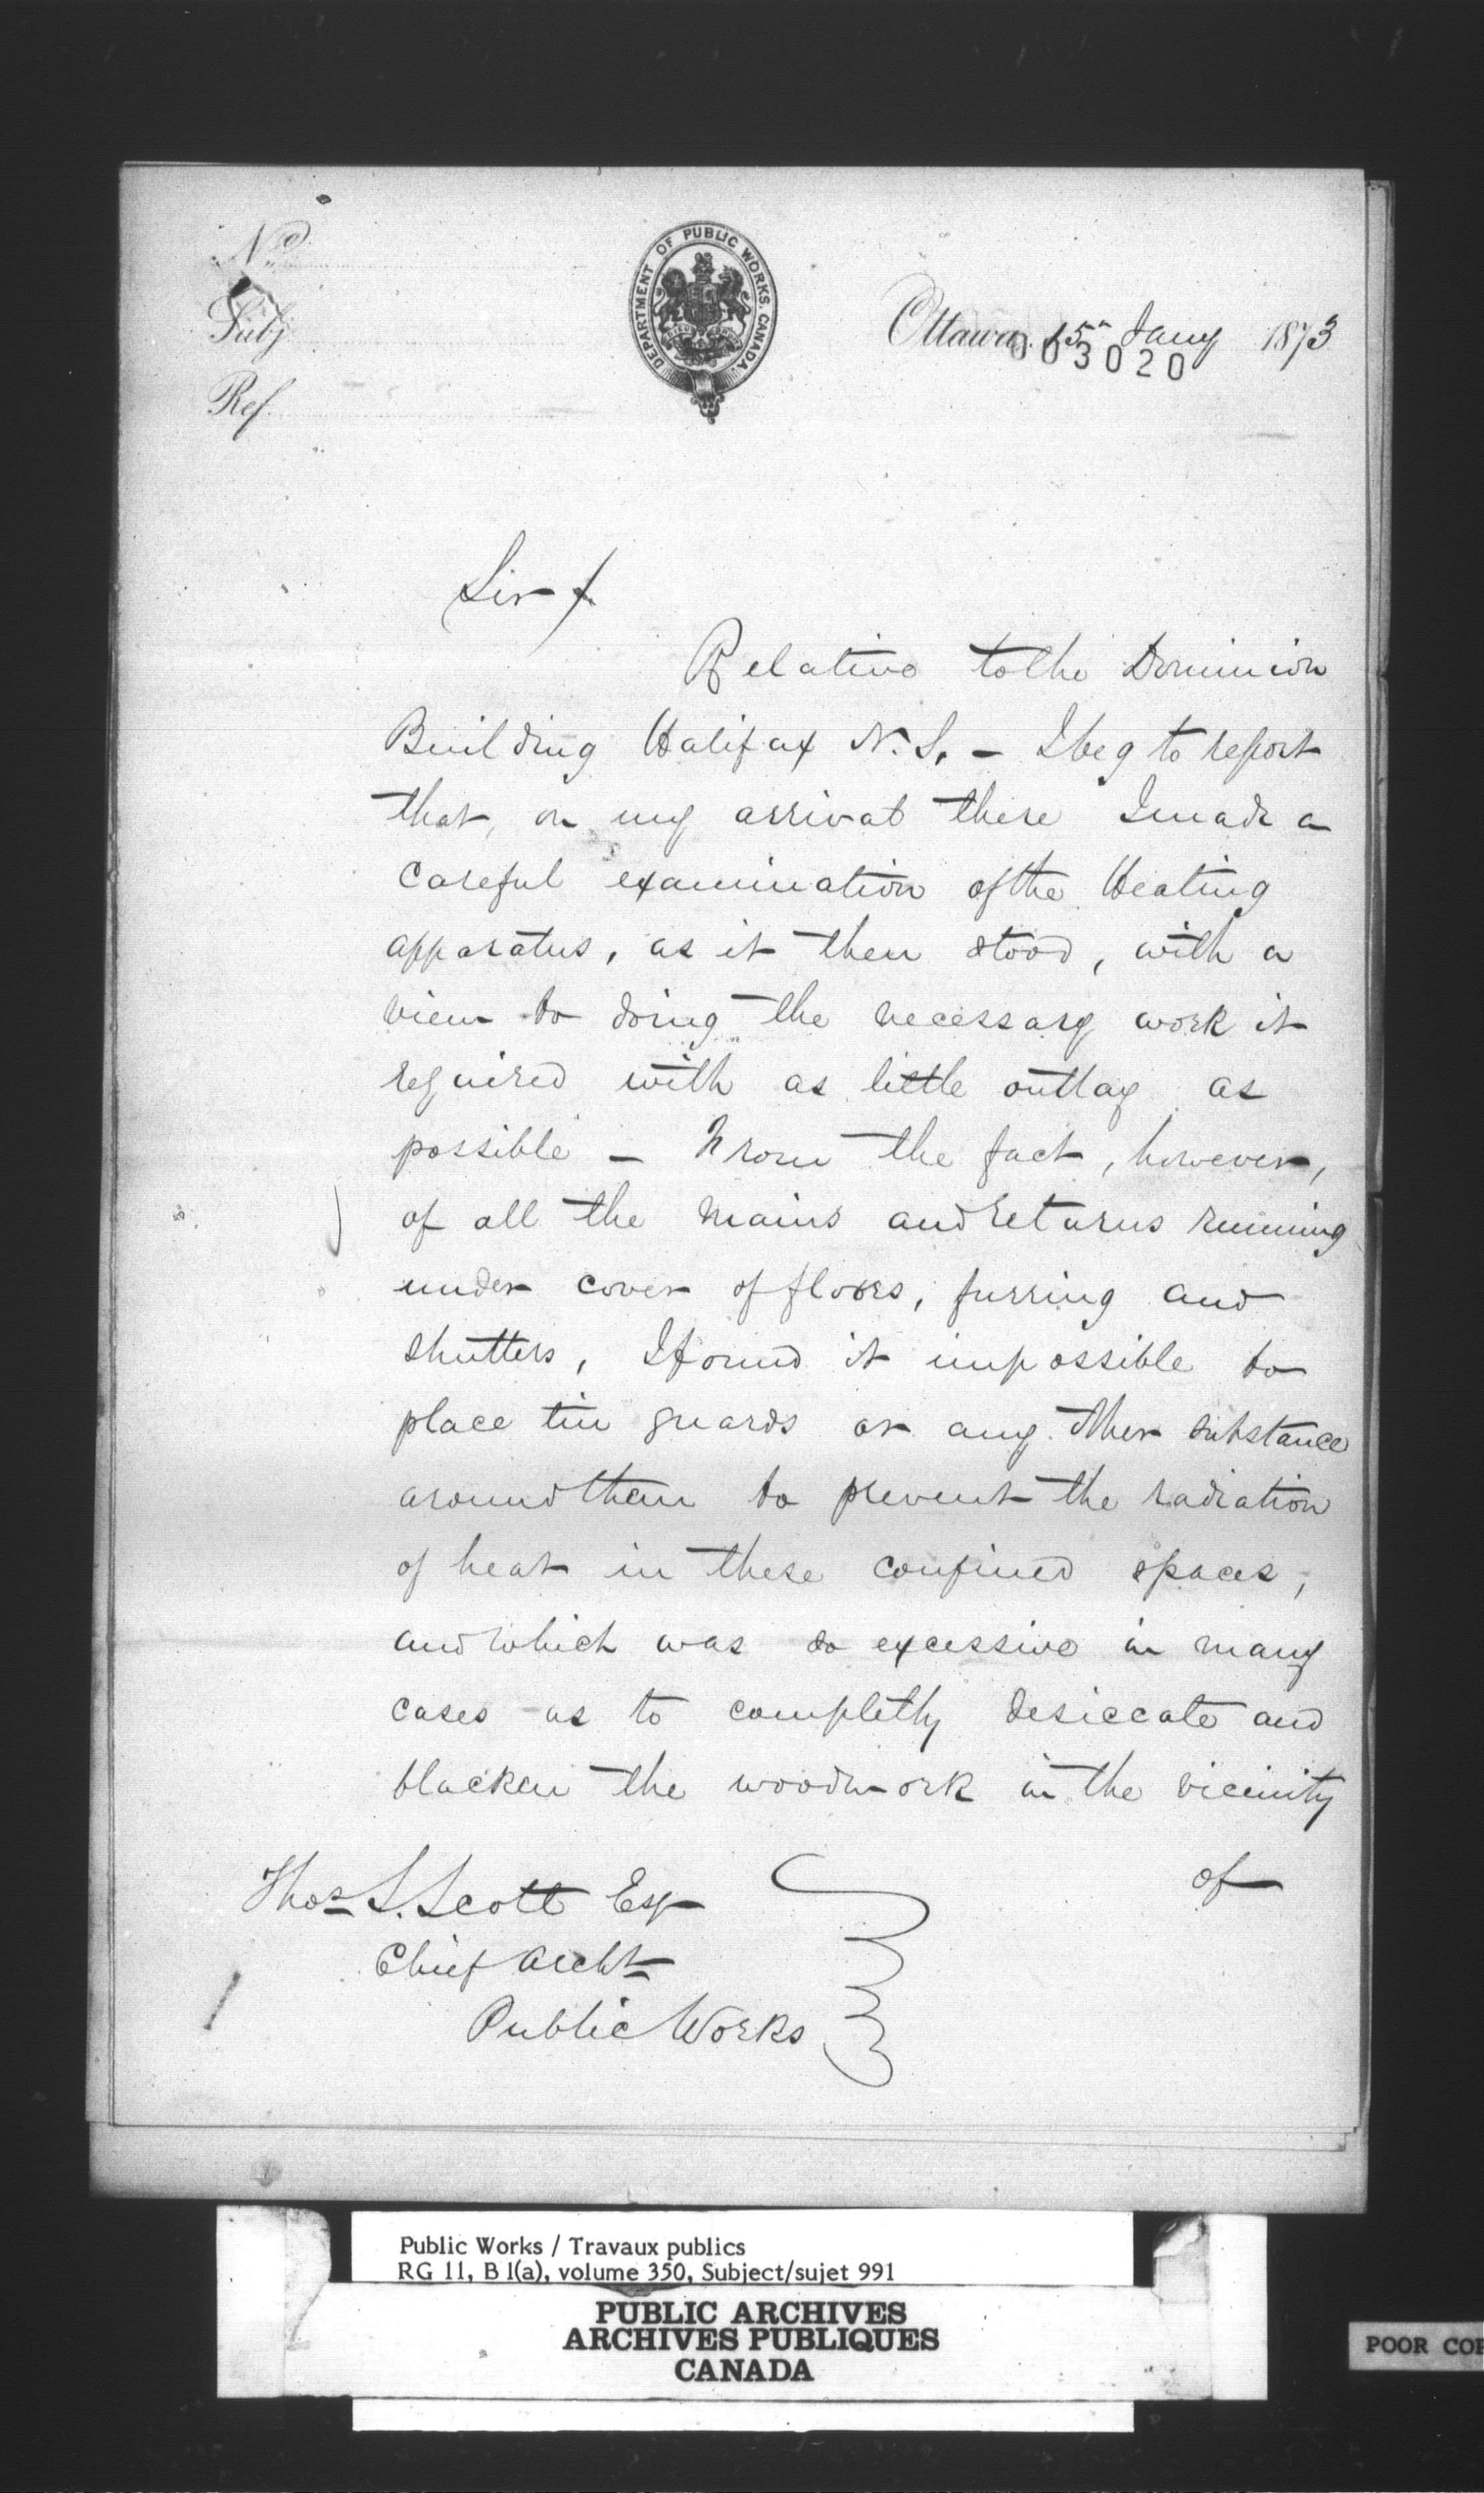 No.
Subj.
Ref.
DEPARTMENT OF PUBLIC WORKS. CANADA.
Ottawa, 15th Jany 1873
003020
Sir /
Relative to the Dominion
Building Halifax N.S. – I beg to report
that, on my arrival there I made a
careful examination of the Heating
apparatus, as it then stood, with a
view to doing the necessary work it
required with as little outlay as
possible – From the fact, however,
of all the mains and returns running
under cover of floors, furring and
shutters, I found it impossible to
place tin guards or any other substance
around them to prevent the radiation
of heat in these confined spaces,
and which was so excessive in many
cases as to completly desiccate and
blacken the woodwork in the vicinity
of
Thos S. Scott Esq
Chief Archt
Public Works
Public Works / Travaux publics
RG 11, B 1(a), volume 350, Subject/sujet 991
PUBLIC ARCHIVES
ARCHIVES PUBLIQUES
CANADA
POOR COP